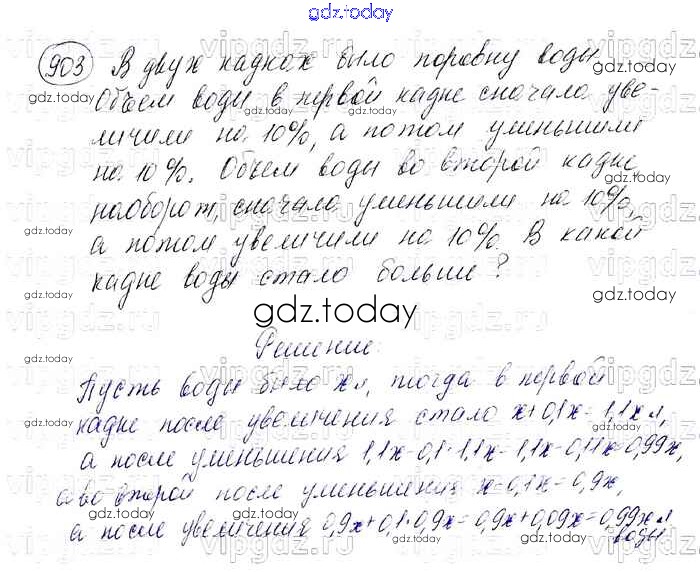 gdz.today
903 В двух кадках было поровну воды
Объем воды в первой кадке сначала уве-
личили на 10%, а потом уменьшили
на 10%. Объем воды во второй кадке,
наоборот, сначала уменьшили на 10%,
а потом увеличили на 10%. В какой
кадке воды стало больше?
gdz.today
Решение:
Пусть воды было x л, тогда в первой
кадке после увеличения стало x+0,1x=1,1x л,
а после уменьшения 1,1x-0,1·1,1x=1,1x-0,11x=0,99x,
а во второй после уменьшения x-0,1x=0,9x,
а после увеличения 0,9x+0,1·0,9x=0,9x+0,09x=0,99x л
воды